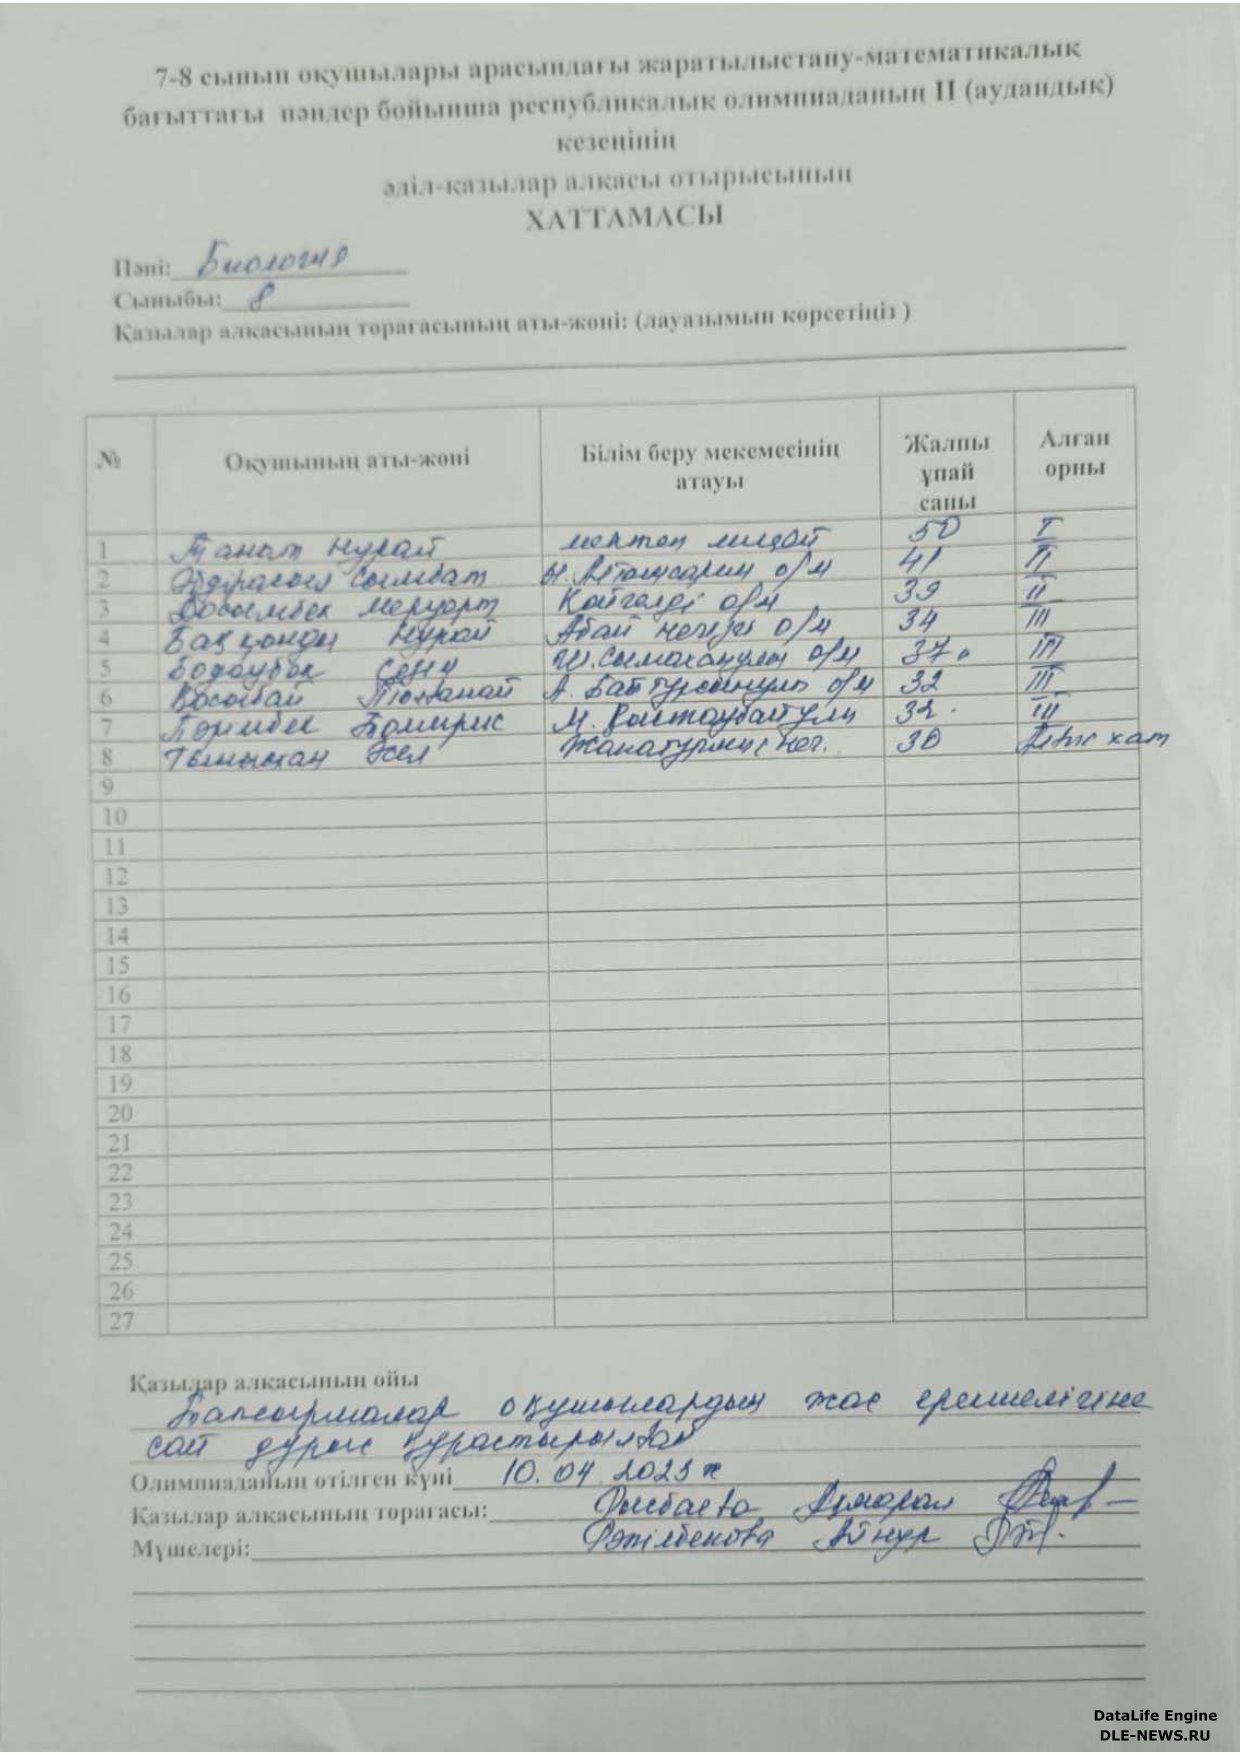 7-8 сынып оқушылары арасындағы жаратылыстану-математикалық
бағыттағы пәндер бойынша республикалық олимпиаданың II (аудандық)
кезеңінің
әділ-қазылар алқасы отырысының
ХАТТАМАСЫ
Пәні: Биология
Сыныбы: 8
Қазылар алқасының төрағасының аты-жөні: (лауазымын көрсетіңіз )
№ Оқушының аты-жөні Білім беру мекемесінің атауы Жалпы ұпай саны Алған орны
1 Танат Нұрай мектеп лицей 50 I
2 Сымбат Ы. Алтынсарин о/м 41 II
3 Досымбек Меруерт о/м 39 II
4 Нұрай Абай негізгі о/м 34 III
5 о/м 37 III
6 А. Байтұрсынұлы о/м 32 III
7 Томирис М. 32 III
8 Тынысхан Әсел 30 Алғыс хат
9
10
11
12
13
14
15
16
17
18
19
20
21
22
23
24
25
26
27
Қазылар алқасының ойы
Тапсырмалар оқушылардың жас ерекшелігіне
сай дұрыс құрастырылған
Олимпиаданың өтілген күні 10.04.2023 ж
Қазылар алқасының төрағасы: Рысбаева Ақмарал
Мүшелері: Әтілбекова Айнұр
DataLife Engine
DLE-NEWS.RU